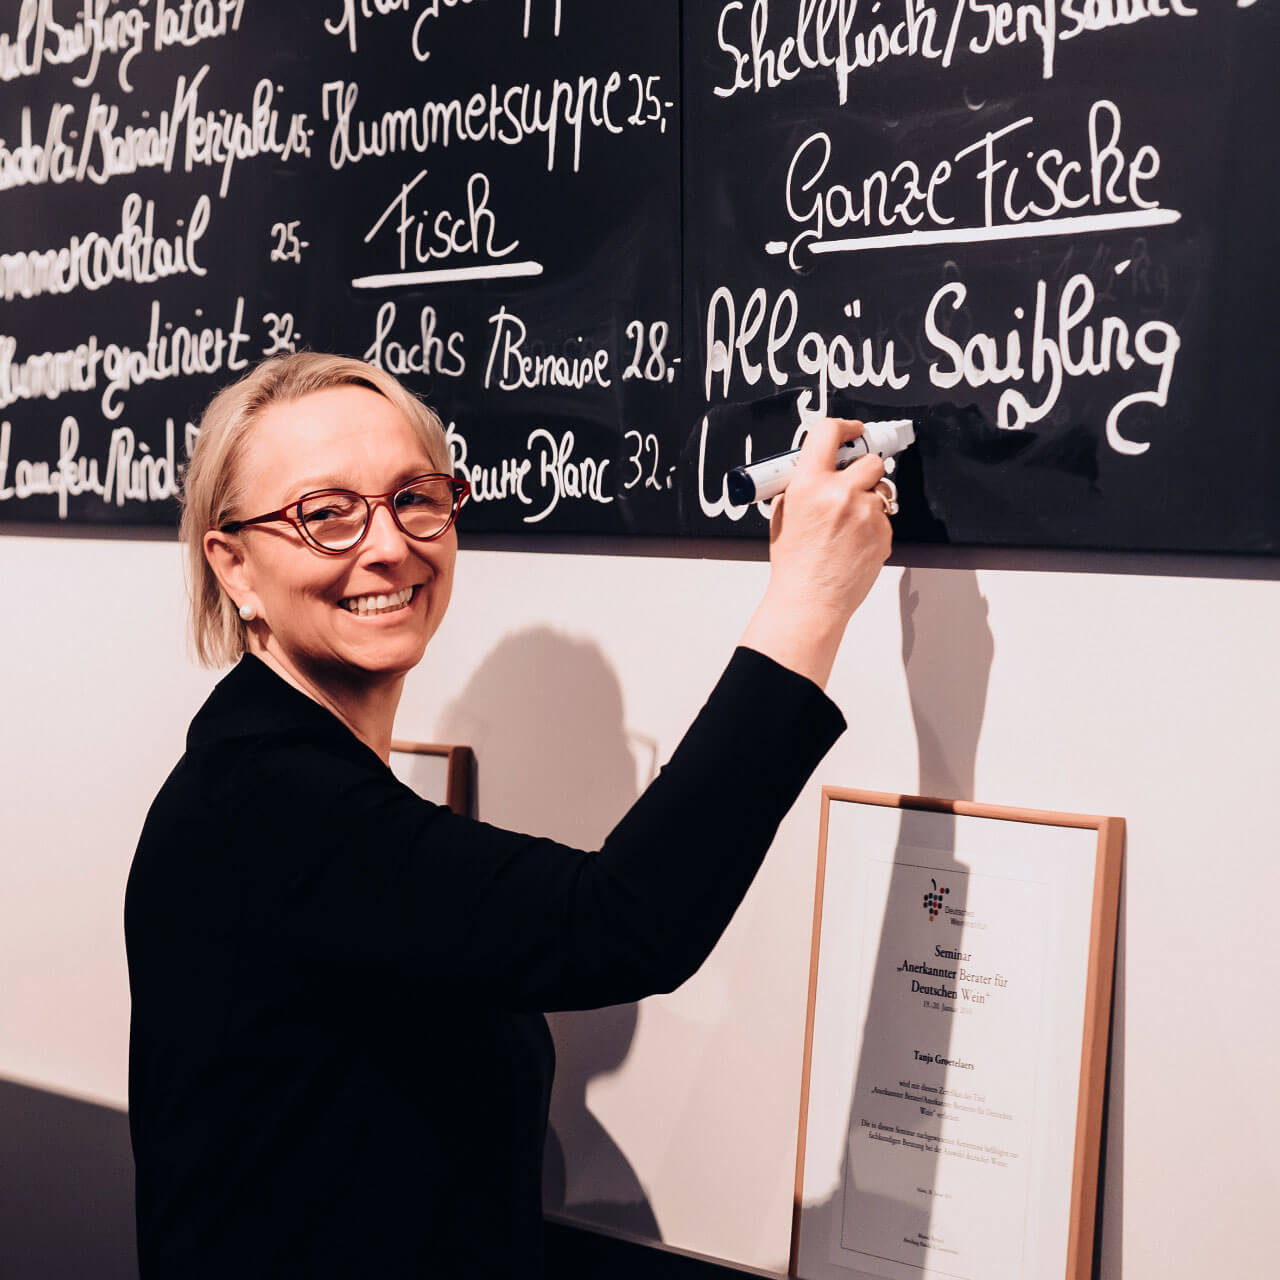 Saibling-Tatar
Hummersuppe 25,-
Fisch
Lachs /Bernaise 28,-
Beurre Blanc 32,-
/Teriyaki 15,-
25,-
Hummer gratiniert 32,-
/Rind
Schellfisch/Senfsauce
Ganze Fische
Allgäu Saibling
Deutsches
Weininstitut
Seminar
„Anerkannter Berater für
Deutschen Wein“
19.-20. Januar
Tanja Groetelaers
wird mit diesem Zertifikat der Titel
„Anerkannter Berater/Anerkannte Beraterin für Deutschen
Wein“ verliehen.
Die in diesem Seminar nachgewiesenen Kenntnisse befähigen zur
fachkundigen Beratung bei der Auswahl deutscher Weine.